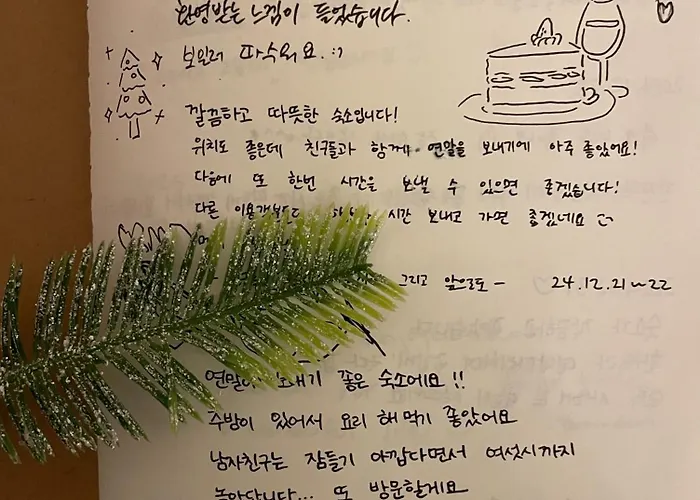 환영받는 느낌이 들었습니다.
보일러 따숴워요. :)
깔끔하고 따뜻한 숙소입니다!
위치도 좋은데 친구들과 함께 연말을 보내기에 아주 좋았어요!
다음에 또 한번 시간을 보낼 수 있으면 좋겠습니다!
다른 시간 보내고 가면 좋겠네요
그리고 앞으로도- 24.12.21~22
보내기 좋은 숙소에요 !!
주방이 있어서 요리 해먹기 좋았어요
남자친구는 잠들기 아깝다면서 여섯시까지
놀아답니다... 또 방문할게요